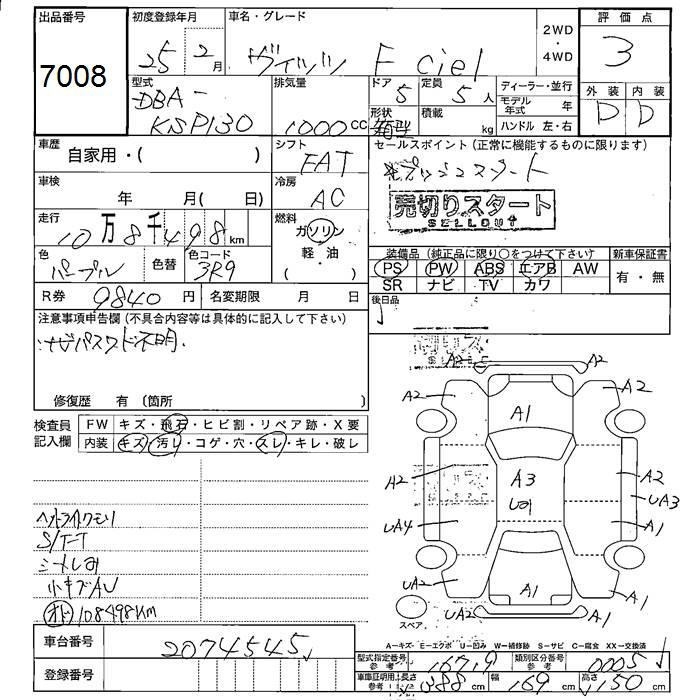 出品番号
7008
初度登録年月
25 2月
車名・グレード
ヴィッツ F ciel
2WD
・
4WD
評価点
3
外装 内装
D D
型式
DBA-
KSP130
排気量
1000cc
ドア
5
定員
5人
形状
箱型
積載
kg
ディーラー・並行
モデル年式 年
ハンドル 左・右
車歴
自家用・( )
シフト
FAT
セールスポイント (正常に機能するものに限ります)
プッシュスタート
売切りスタート
SELLOUT
車検
年 月( 日)
冷房
AC
走行
10万8千498km
燃料
ガソリン
軽・油
( )
色
パープル
色替
色コード
3R9
装備品 (純正品に限り○をつけて下さい)
PS PW ABS エアB AW
SR ナビ TV カワ
新車保証書
有・無
R券 9840円
名変期限 月 日
後日品
注意事項申告欄 (不具合内容等は具体的に記入して下さい)
ナビパスワード不明.
修復歴 有 (箇所 )
検査員
記入欄
FW キズ・飛石・ヒビ割・リペア跡・X要
内装 キズ・汚レ・コゲ・穴・スレ・キレ・破レ
ヘッドライトクモリ
S/T-T
シートしみ
小キズAU
オド 108498km
A2 A2
A2 A1 A2
A2 A3 A2
U01 UA3
UA4 A1
UA2 A1 A1
UA2
スペア
A=キズ E=エクボ U=凹み W=補修跡 S=サビ C=腐食 XX=交換済
車台番号
2074545
登録番号
型式指定番号
参考
16719
類別区分番号
参考
0005
車庫証明用
参考
長さ 388cm 幅 169cm 高さ 150cm